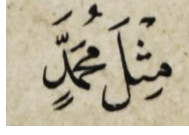 مِثْلَ مُحَمَّدٍ